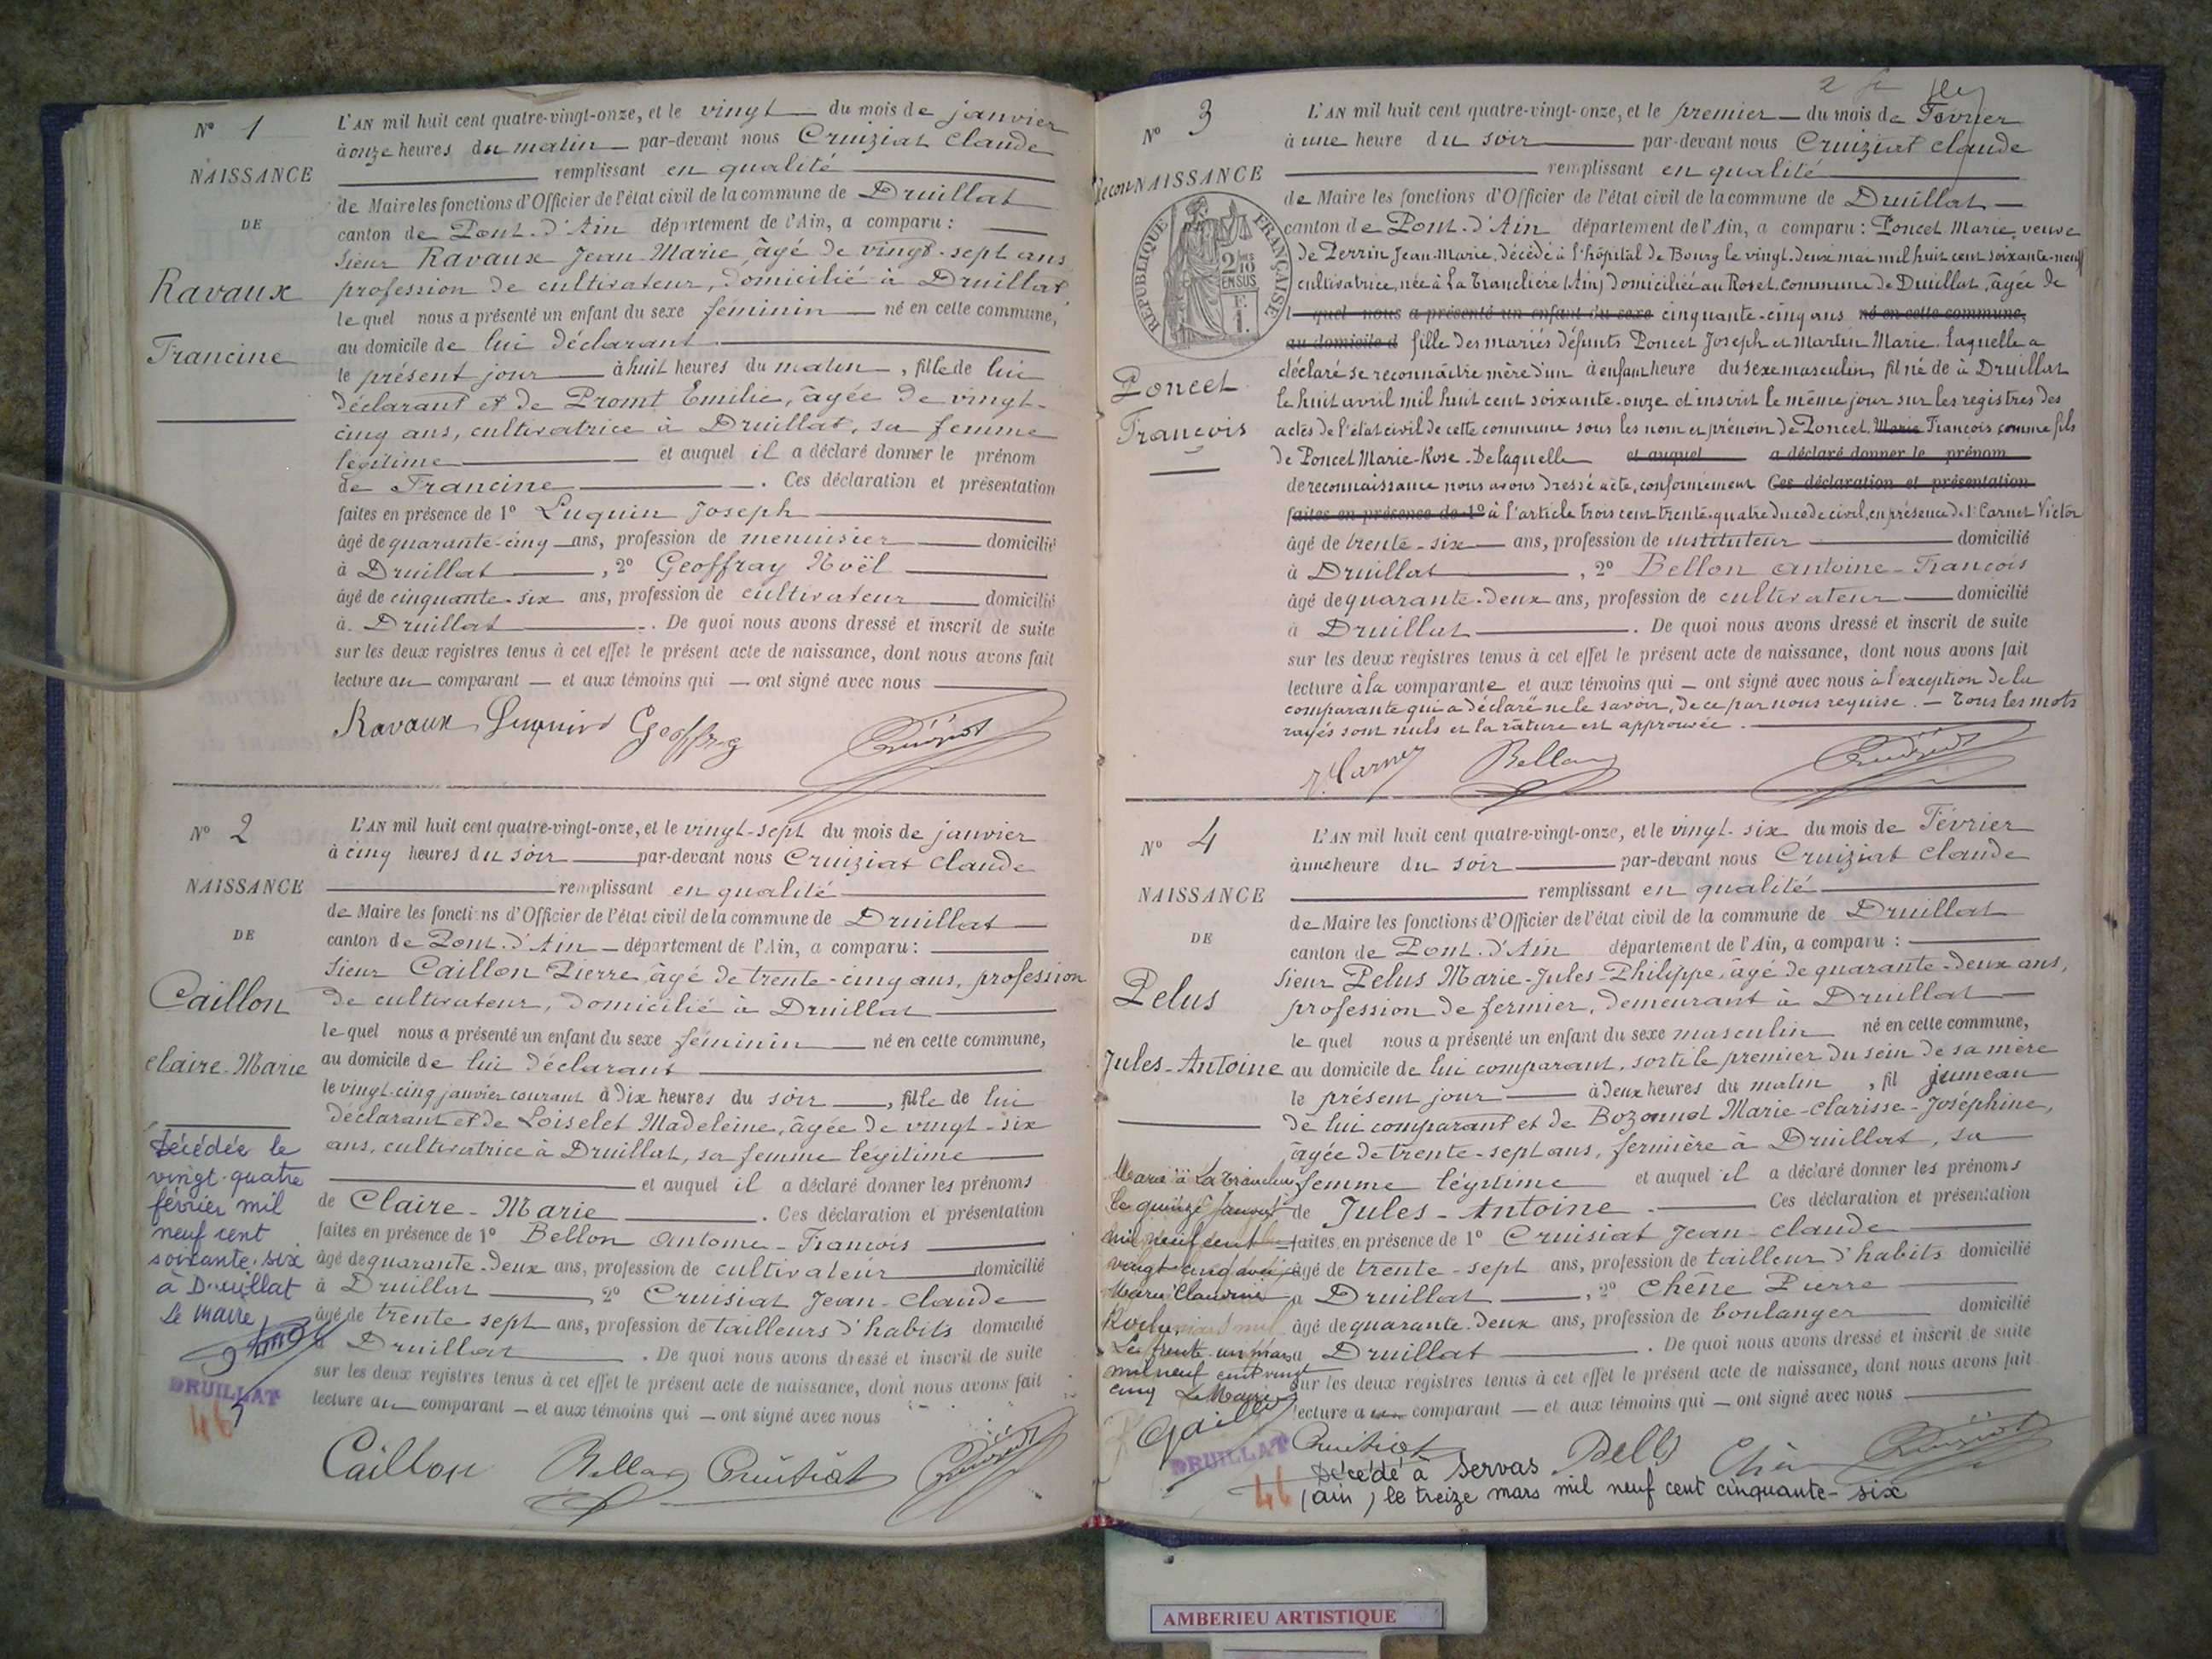 N° 1
NAISSANCE
DE
Ravaux
Francine
L'AN mil huit cent quatre-vingt-onze, et le vingt du mois de janvier
à onze heures du matin par-devant nous Cruiziat Claude
remplissant en qualité
de Maire les fonctions d'Officier de l'état civil de la commune de Druillat
canton de Pont-d'Ain département de l'Ain, a comparu :
Sieur Ravaux Jean Marie, âgé de vingt-sept ans
profession de cultivateur, domicilié à Druillat,
le quel nous a présenté un enfant du sexe féminin né en cette commune,
au domicile de lui déclarant
le présent jour à huit heures du matin, fille de lui
déclarant et de Promt Emilie, âgée de vingt-
cinq ans, cultivatrice à Druillat, sa femme
légitime et auquel il a déclaré donner le prénom
de Francine. Ces déclaration et présentation
faites en présence de 1° Luquin Joseph
âgé de quarante-cinq ans, profession de menuisier domicilié
à Druillat, 2° Geoffray Noël
âgé de cinquante-six ans, profession de cultivateur domicilié
à Druillat. De quoi nous avons dressé et inscrit de suite
sur les deux registres tenus à cet effet le présent acte de naissance, dont nous avons fait
lecture au comparant et aux témoins qui ont signé avec nous
Ravaux Luquin Geoffray Cruiziat
N° 2
NAISSANCE
DE
Caillon
Claire-Marie
Décédée le
vingt-quatre
février mil
neuf cent
soixante-six
à Druillat
Le Maire
DRUILLAT
46
L'AN mil huit cent quatre-vingt-onze, et le vingt-sept du mois de janvier
à cinq heures du soir par-devant nous Cruiziat Claude
remplissant en qualité
de Maire les fonctions d'Officier de l'état civil de la commune de Druillat
canton de Pont-d'Ain département de l'Ain, a comparu :
Sieur Caillon Pierre, âgé de trente-cinq ans, profession
de cultivateur, domicilié à Druillat
le quel nous a présenté un enfant du sexe féminin né en cette commune,
au domicile de lui déclarant
le vingt-cinq janvier courant à dix heures du soir, fille de lui
déclarant et de Loiselet Madeleine, âgée de vingt-six
ans, cultivatrice à Druillat, sa femme légitime
et auquel il a déclaré donner les prénoms
de Claire-Marie. Ces déclaration et présentation
faites en présence de 1° Bellon Antoine-François
âgé de quarante-deux ans, profession de cultivateur domicilié
à Druillat, 2° Cruisiat Jean-Claude
âgé de trente sept ans, profession de tailleurs d'habits domicilié
à Druillat. De quoi nous avons dressé et inscrit de suite
sur les deux registres tenus à cet effet le présent acte de naissance, dont nous avons fait
lecture au comparant et aux témoins qui ont signé avec nous
Caillon Bellon Cruisiat Cruiziat
N° 3
ReconNAISSANCE
RÉPUBLIQUE FRANÇAISE
2/10 EN SUS
1 F.
Poncet
François
L'AN mil huit cent quatre-vingt-onze, et le premier du mois de Février
à une heure du soir par-devant nous Cruiziat Claude
remplissant en qualité
de Maire les fonctions d'Officier de l'état civil de la commune de Druillat
canton de Pont-d'Ain département de l'Ain, a comparu : Poncet Marie, veuve
de Perrin Jean-Marie, décédé à l'hôpital de Bourg le vingt-deux mai mil huit cent soixante-neuf
cultivatrice, née à La Tranclière (Ain) domiciliée au Roset, commune de Druillat, âgée de
l quel nous a présenté un enfant du sexe cinquante-cinq ans né en cette commune,
au domicile d fille des mariés défunts Poncet Joseph et Martin Marie. Laquelle a
déclaré se reconnaître mère d'un à enfant heure du sexe masculin, fil né de à Druillat
le huit avril mil huit cent soixante-onze et inscrit le même jour sur les registres des
actes de l'état civil de cette commune sous les nom et prénom de Poncet Marie François comme fils
de Poncet Marie-Rose. De laquelle et auquel a déclaré donner le prénom
de reconnaissance nous avons dressé acte, conformément Ces déclaration et présentation
faites en présence de 1° à l'article trois cent trente-quatre du code civil, en présence de 1° Carnet Victor
âgé de trente-six ans, profession de instituteur domicilié
à Druillat, 2° Bellon Antoine-François
âgé de quarante-deux ans, profession de cultivateur domicilié
à Druillat. De quoi nous avons dressé et inscrit de suite
sur les deux registres tenus à cet effet le présent acte de naissance, dont nous avons fait
lecture à la comparante et aux témoins qui ont signé avec nous à l'exception de la
comparante qui a déclaré ne le savoir, de ce par nous requise. — Tous les mots
rayés sont nuls et la râture est approuvée.
V. Carnet Bellon Cruiziat
N° 4
NAISSANCE
DE
Pelus
Jules-Antoine
Marié à La Tranclière
le quinze Janvier
mil neuf cent
vingt cinq avec
Marie Claudine
Le trente un mars
mil neuf cent vingt
cinq Le Maire
DRUILLAT
46
L'AN mil huit cent quatre-vingt-onze, et le vingt-six du mois de Février
à une heure du soir par-devant nous Cruiziat Claude
remplissant en qualité
de Maire les fonctions d'Officier de l'état civil de la commune de Druillat
canton de Pont-d'Ain département de l'Ain, a comparu :
Sieur Pelus Marie-Jules-Philippe, âgé de quarante-deux ans,
profession de fermier, demeurant à Druillat
le quel nous a présenté un enfant du sexe masculin né en cette commune,
au domicile de lui comparant, sorti le premier du sein de sa mère
le présent jour à deux heures du matin, fil jumeau
de lui comparant et de Bozonnet Marie-Clarisse-Joséphine,
âgée de trente-sept ans, fermière à Druillat, sa
femme légitime et auquel il a déclaré donner les prénoms
de Jules-Antoine. Ces déclaration et présentation
faites en présence de 1° Cruisiat Jean-Claude
âgé de trente-sept ans, profession de tailleur d'habits domicilié
à Druillat, 2° Chêne Pierre
âgé de quarante-deux ans, profession de boulanger domicilié
à Druillat. De quoi nous avons dressé et inscrit de suite
sur les deux registres tenus à cet effet le présent acte de naissance, dont nous avons fait
lecture au comparant et aux témoins qui ont signé avec nous
Cruisiat Chêne Cruiziat
Décédé à Servas
(Ain) le treize mars mil neuf cent cinquante-six
AMBERIEU ARTISTIQUE